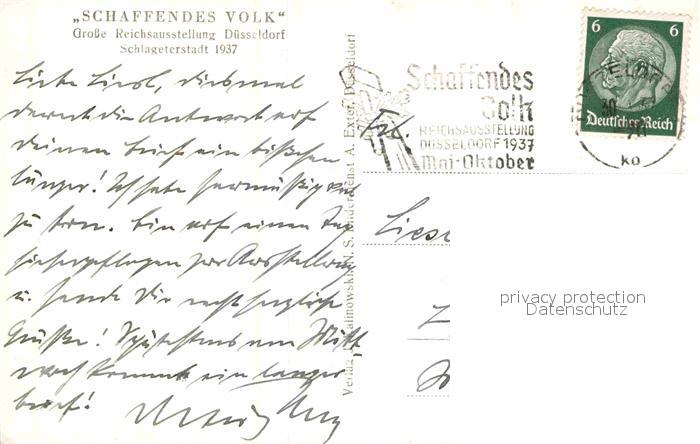 „SCHAFFENDES VOLK“
Große Reichsausstellung Düsseldorf
Schlageterstadt 1937
Liebe Liesl, diesmal
dauert die Antwort auf
deinen Brief ein bißchen
länger! Ich habe
zu tun. Bin auf einen Tag
zur Ausstellung
u. sende Dir recht herzliche
Grüße! Spätestens am Mitt-
woch kommt ein langer
Brief!
Schaffendes
Volk
REICHSAUSSTELLUNG
DÜSSELDORF 1937
Mai-Oktober
6 6
Deutsches Reich
privacy protection
Datenschutz